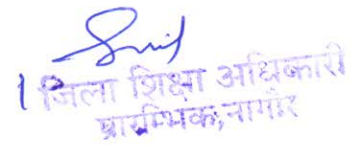 जिला शिक्षा अधिकारी
प्रारम्भिक,नागौर